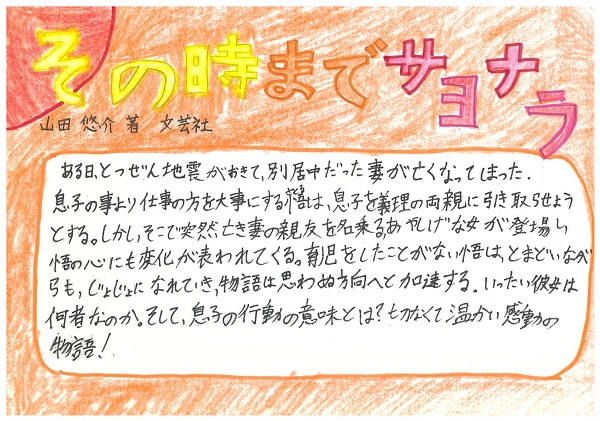 その時までサヨナラ
山田 悠介 著 文芸社
ある日、とつぜん地震がおきて、別居中だった妻が亡くなってしまった.
息子の事より仕事の方を大事にする悟は、息子を義理の両親に引き取らせよう
とする。しかし、そこで突然、亡き妻の親友を名乗るあやしげな女が登場し
悟の心にも変化が表われてくる。育児をしたことがない悟は、とまどいなが
らも、じょじょになれていき、物語は思わぬ方向へと加速する. いったい彼女は
何者なのか。そして、息子の行動の意味とは?切なくて温かい感動の
物語!